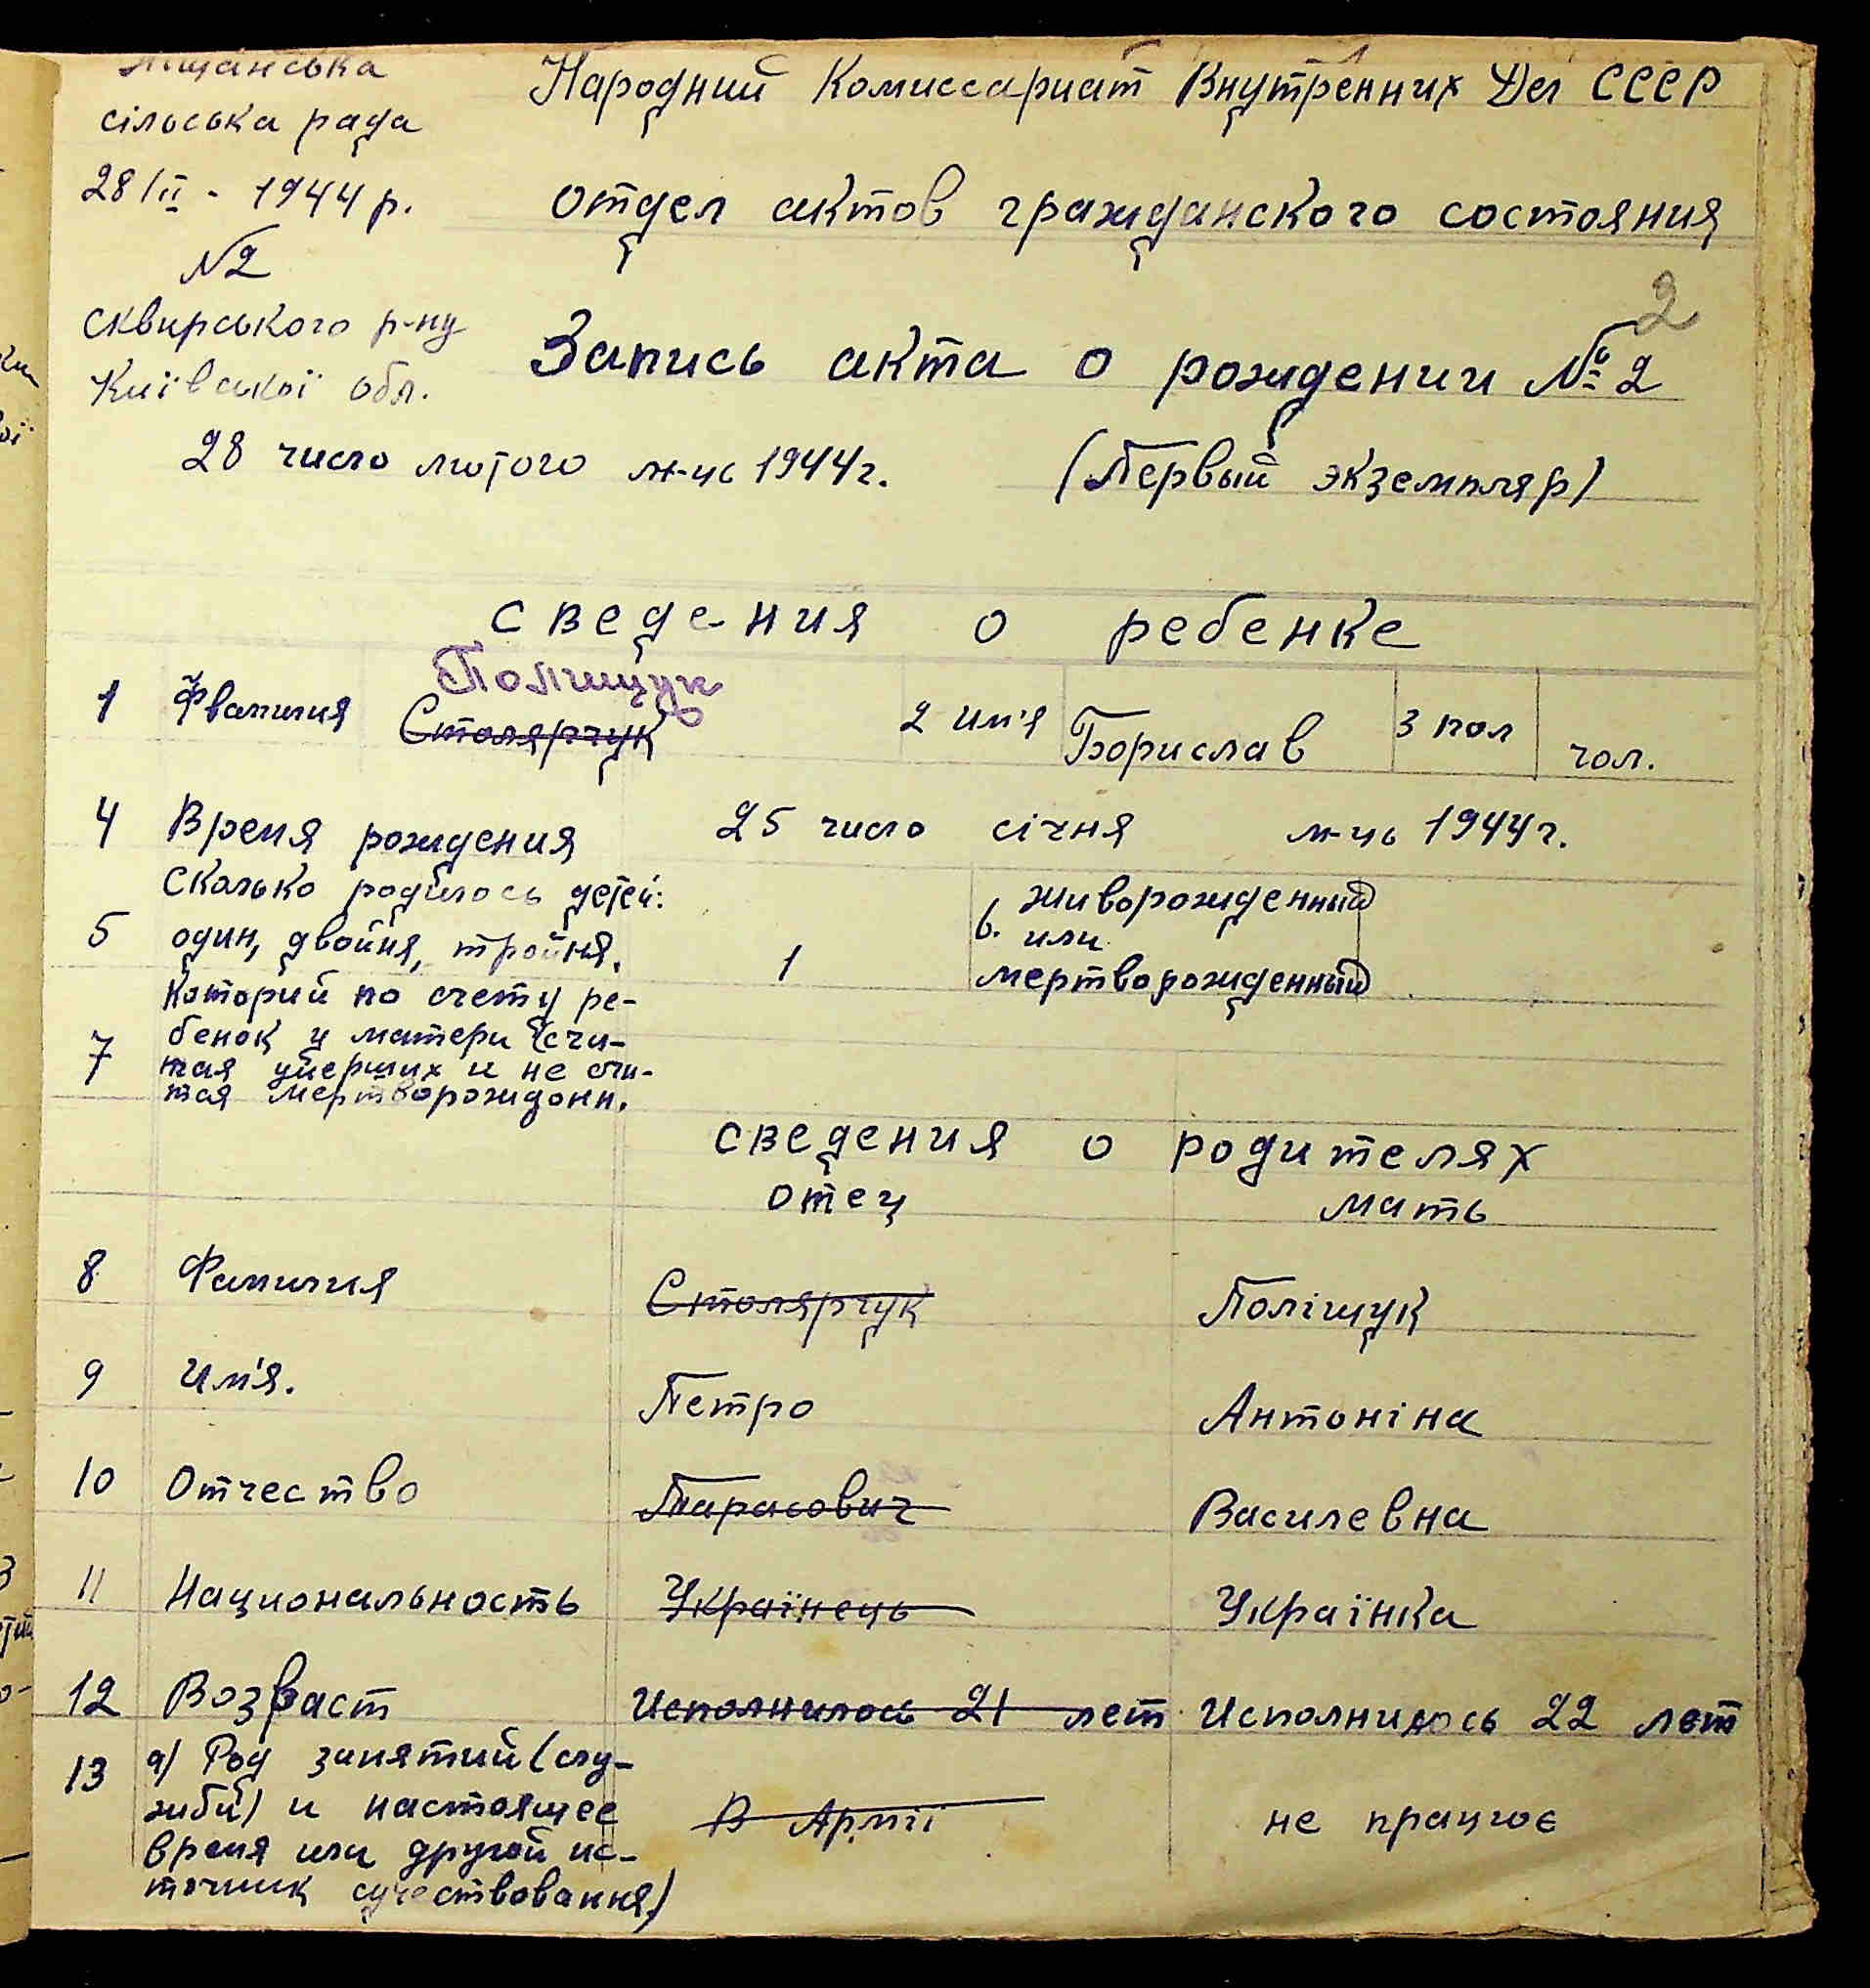 сільська рада
28/II - 1944 р.
№2
Сквирського р-ну
Київської обл.
28 число лютого м-ць 1944 г.
Народний Комиссариат Внутренних Дел СССР
отдел актов гражданского состояния
2
Запись акта о рождении № 2
(Первый экземпляр)
сведения о ребенке
Поліщук
1 Фвамилия Столярчук 2 им'я Борислав 3 пол чол.
4 Время рождения 25 число січня м-ць 1944 г.
5 Сколько родилось детей:
один, двойня, тройня. 1
6. живорожденный
или
мертворожденный
7 Которий по счету ре-
бенок у матери (счи-
тая умерших и не счи-
тая мертворождонн.
сведения о родителях
отец мать
8 Фамилия Столярчук Поліщук
9 им'я. Петро Антоніна
10 Отчество Тарасович Василевна
11 Национальность Українець Українка
12 Возраст Исполнилось 21 лет Исполнилось 22 лет
13 а) Род занятий (слу-
жби) и настоящее В Армії не працює
время или другой ис-
точник существования)